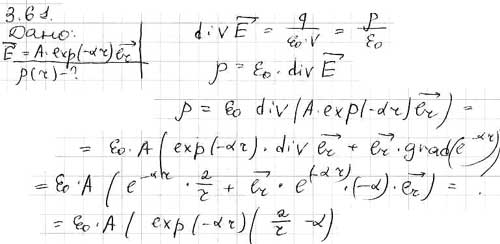 3.61.
Дано:
E⃗ = A·exp(-αr)e⃗r
ρ(r) - ?
div E⃗ = q/(ε0·V) = ρ/ε0
ρ = ε0·div E⃗
ρ = ε0 div(A·exp(-αr)e⃗r) =
= ε0·A(exp(-αr)·div e⃗r + e⃗r·grad(e^-αr)
= ε0·A(e^-αr · 2/r + e⃗r · e^(-αr)·(-α)·e⃗r) =
= ε0·A( exp(-αr)( 2/r - α)